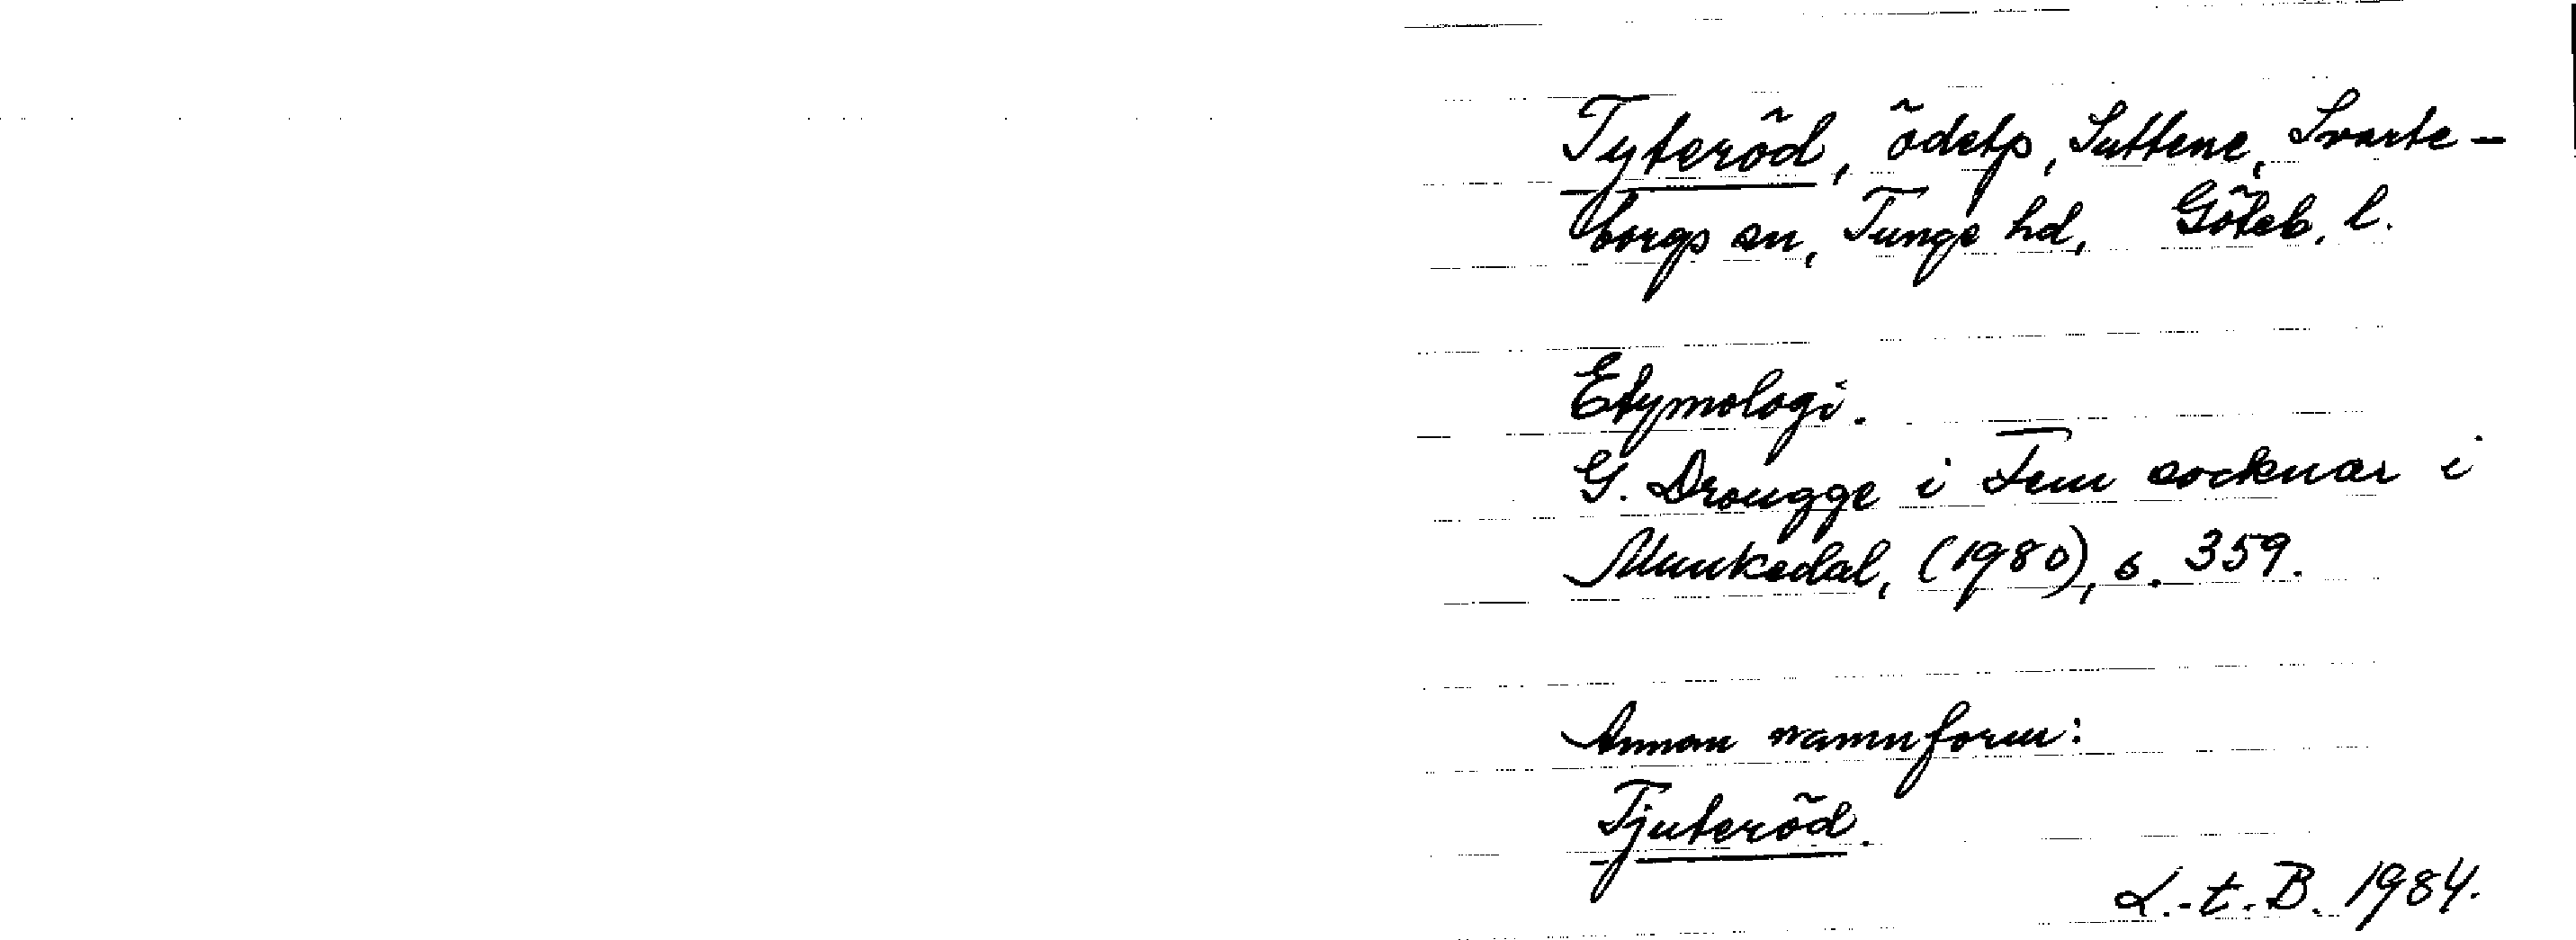 Tyteröd, ödetp, Suttene, Svarte-
borgs sn, Tunge hd, Göteb. l.
Etymologi.
G. Drougge i Fem socknar i
Munkedal, (1980), s. 359.
Annan namnform:
Tjuteröd.
L.-t. B. 1984.